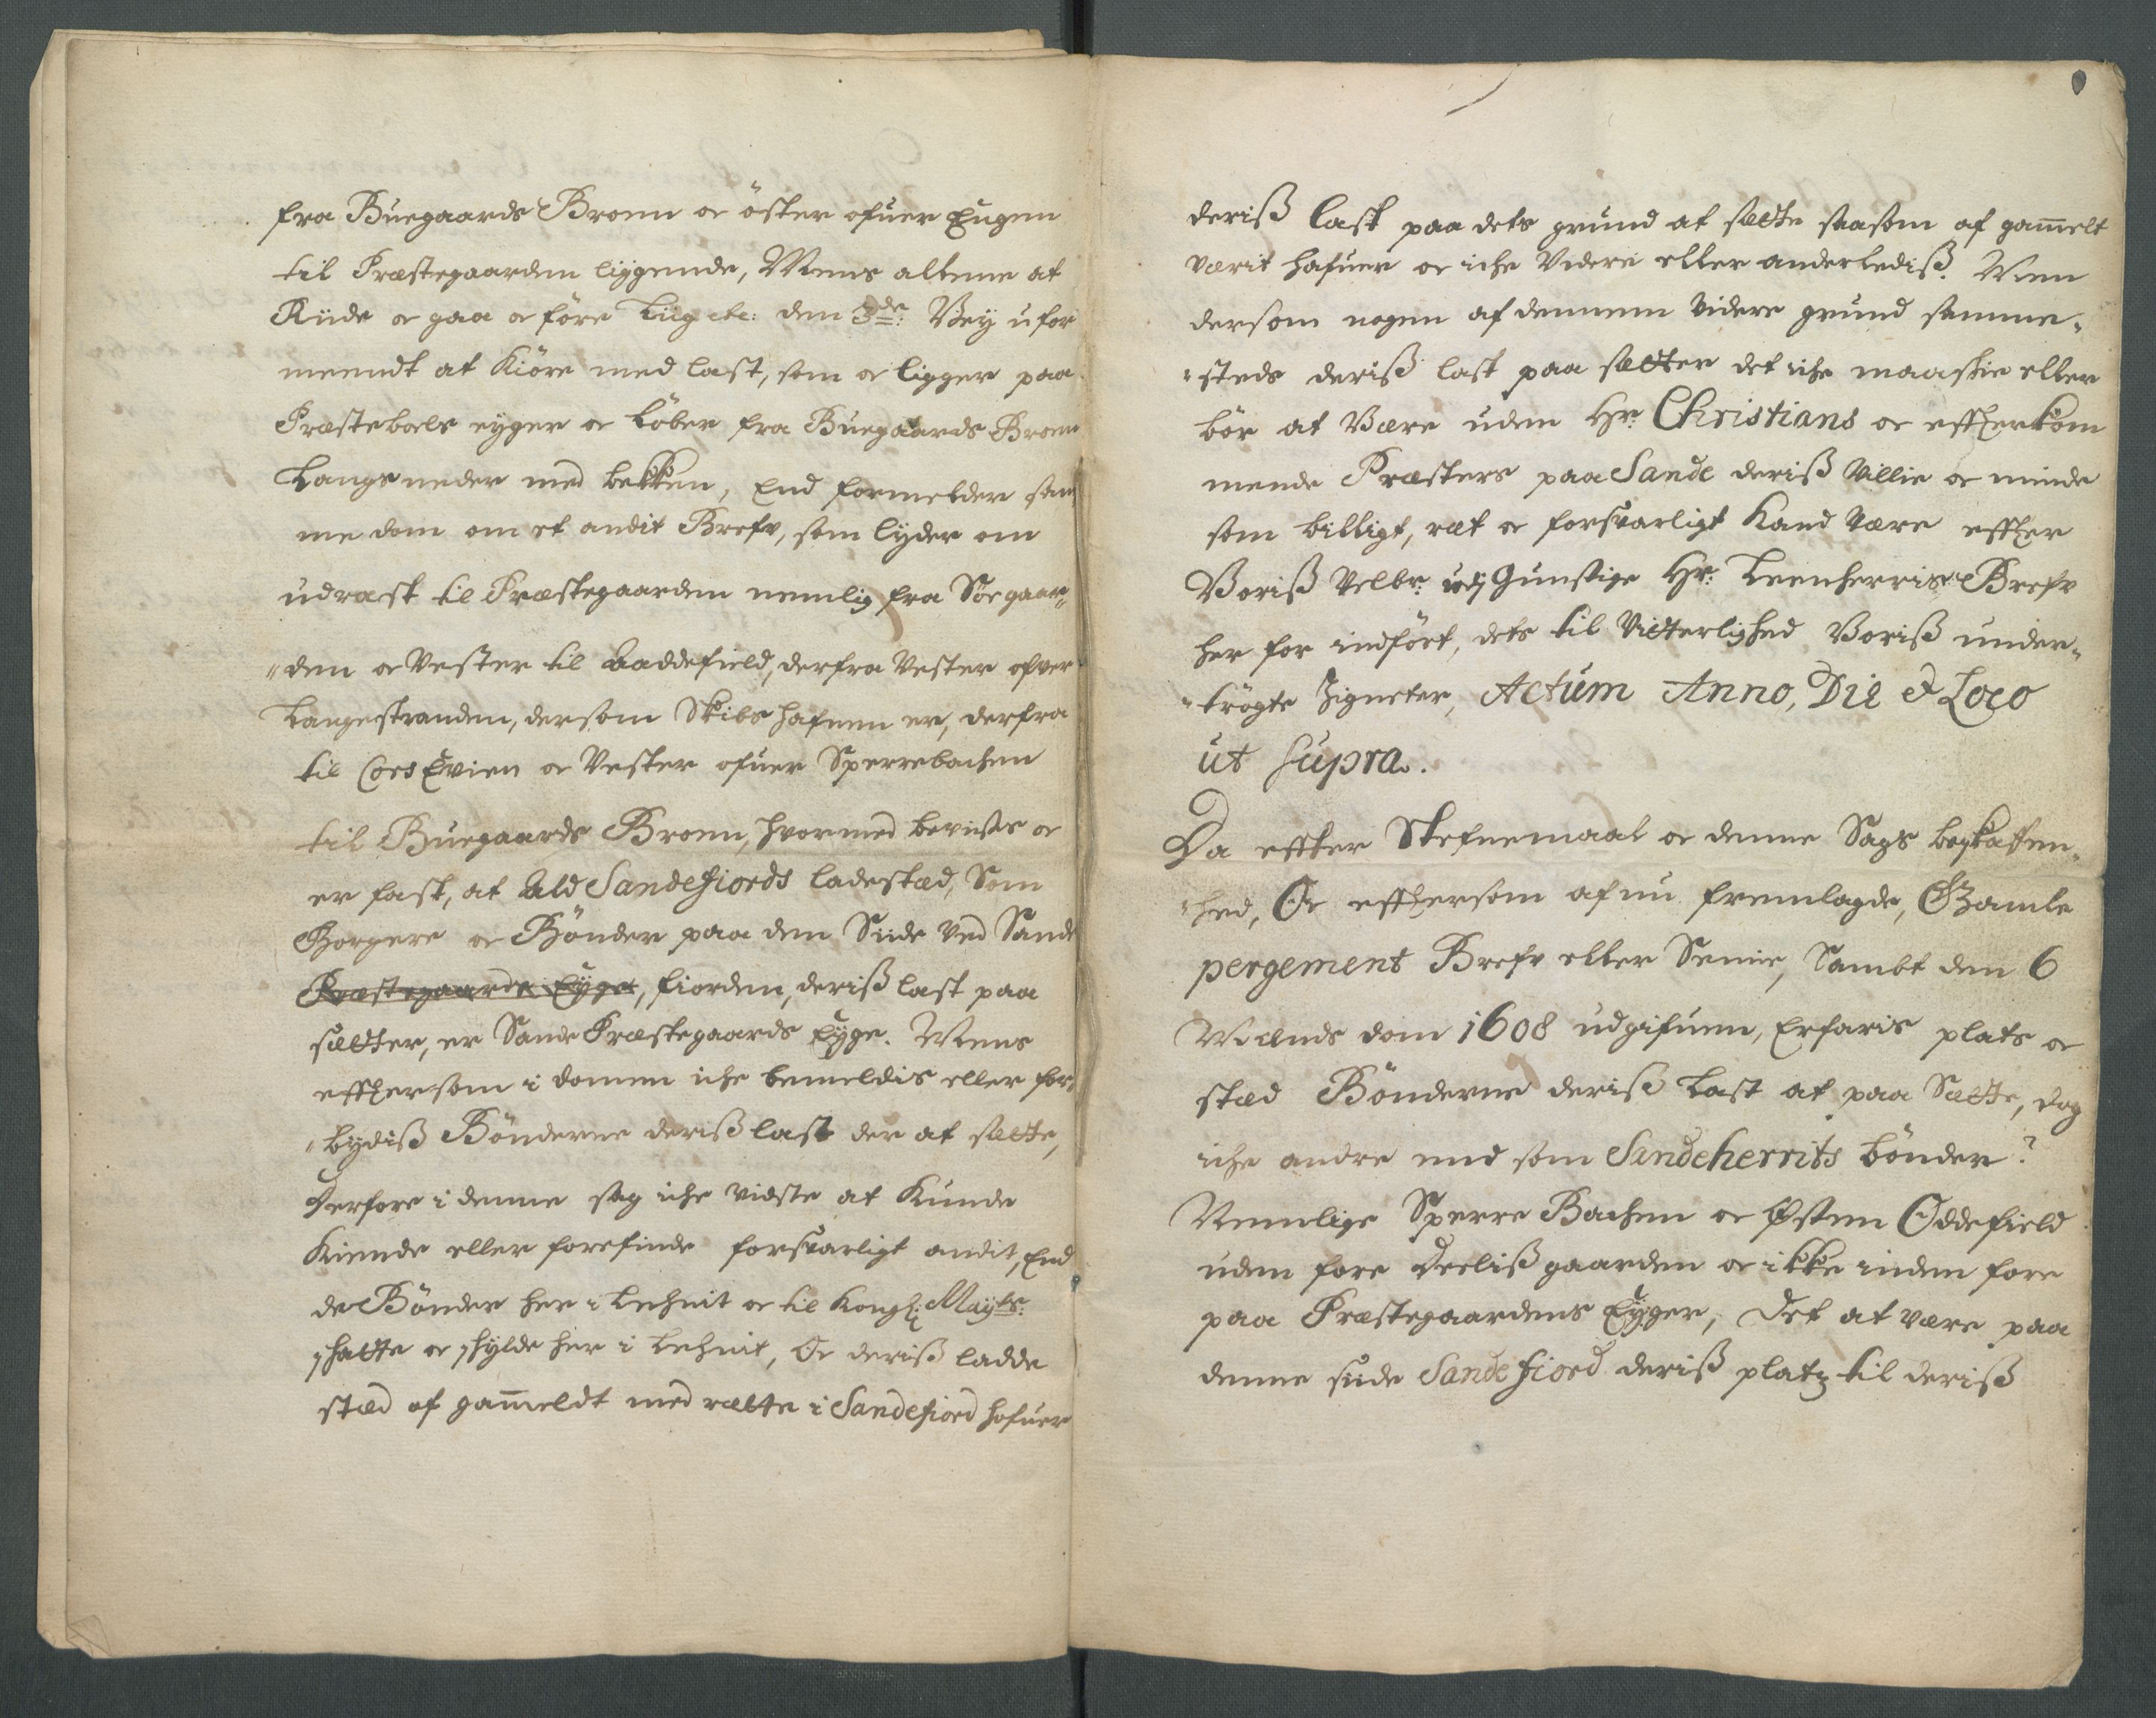 fra Buegaards Broen oc öster ofuer Eugen
til Præstegaarden liggende, Mens allene at
Riide oc gaa oc före Liig etc: den 3de: Veÿ ufor
meendt at Kiöre med last, som oc ligger paa
Præstebols eyger oc löber fra Buegaards Broen
Langs neder med bekken, End formelder sam
me dom om et andit Brefv, som lÿder om
udrast til Præstegaarden nemlig fra Söegaar„
„den oc Vester til Aaddefield, derfra Vester ofver
Langestranden, dersom Skibs hafnen er, derfra
til Cors Evien oc Vester ofuer Sperrebachen
til Buegaards Broen, hvormed bevists oc
er fast, at Ald Sandefiords ladestæd, Som
Borgere oc Bönder paa den Siide Ved Sande
Præstegaards Eyge, fiorden, deriß last paa
sætter, er Sande Præstegaards Eÿge. Mens
effterson i domen iche bemeldis eller for„
„bÿdiß Bönderne deriß last der at sætte,
Derfore i denne sag iche vidste at Kunde
Kiende eller forefinde forsvarligt andit, End
de Bönder her i Lehnit oc til Kongl: Mayts:
skatte oc skÿlde her i Lehnit, Oc deriß ladde
stæd af gam̄eldt med rætte i Sandefiord hafuer
deriß last paa dets grund at sætte saasom af gam̄elt
værit hafuer oc iche Videre eller anderlediß. Men
dersom nogen af dennem videre grund samme„
„steds deriß last paa sætter det iche maaskie eller
bör at Være uden Hr: Christians oc effterkom
mende Præsters paa Sande deriß Villie oc minde
som billigt, ræt oc forsvarligt Kand være effter
Voriß Velbr: Gunstige Hr: Leenherris Brefv
her for indfört, dets til Vitterlighed Voriß under„
„trögte Zigneter, Actum Anno, Die & Loco
ut supra.
Da effter Stefnemaal oc denne Sags beskaffen„
„hed, Oc efftersom af nu fremlagde, Gamle
pergements Brefv eller Senne, Sambt den 6
Mænds dom 1608 udgifuen, Erfaris plats oc
stæd Bönderne deriß Last at paa Sætte, dog
iche andre end som Sandeherrits bönder?
Nemlige Sperre Bachen oc Østen Oddefield
uden fore Deelißgaarden oc ikke inden fore
paa Præstegaardens Eÿger, Det at være paa
denne siide Sandefiord deriß platz til deriß